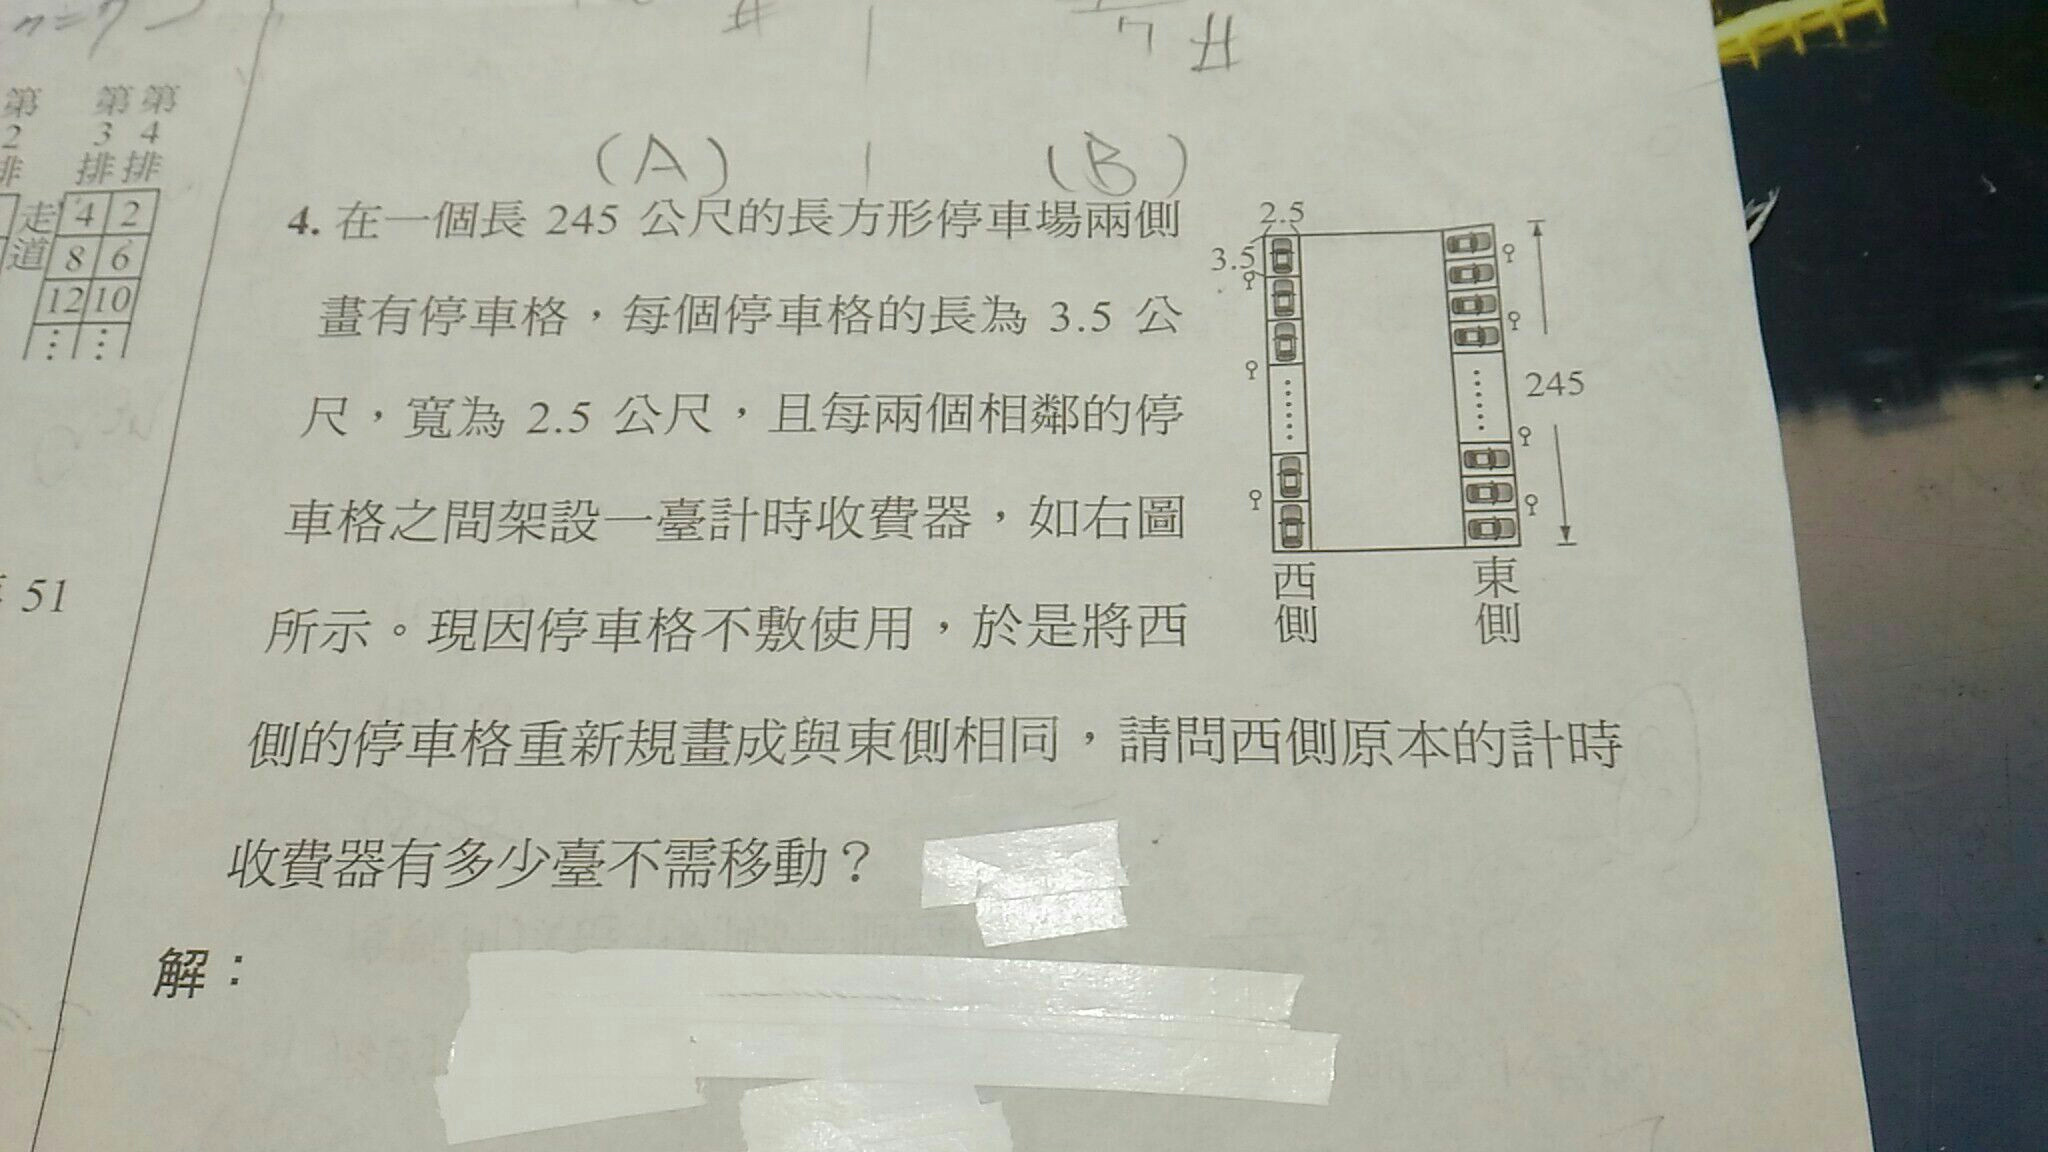 n=7
7 #
第 第 第
2 3 4
排 排 排
走道 4 2
8 6
12 10
51
(A) (B)
4. 在一個長 245 公尺的長方形停車場兩側
畫有停車格，每個停車格的長為 3.5 公
尺，寬為 2.5 公尺，且每兩個相鄰的停
車格之間架設一臺計時收費器，如右圖
所示。現因停車格不敷使用，於是將西
側的停車格重新規畫成與東側相同，請問西側原本的計時
收費器有多少臺不需移動？
2.5
3.5
245
西側
東側
解：